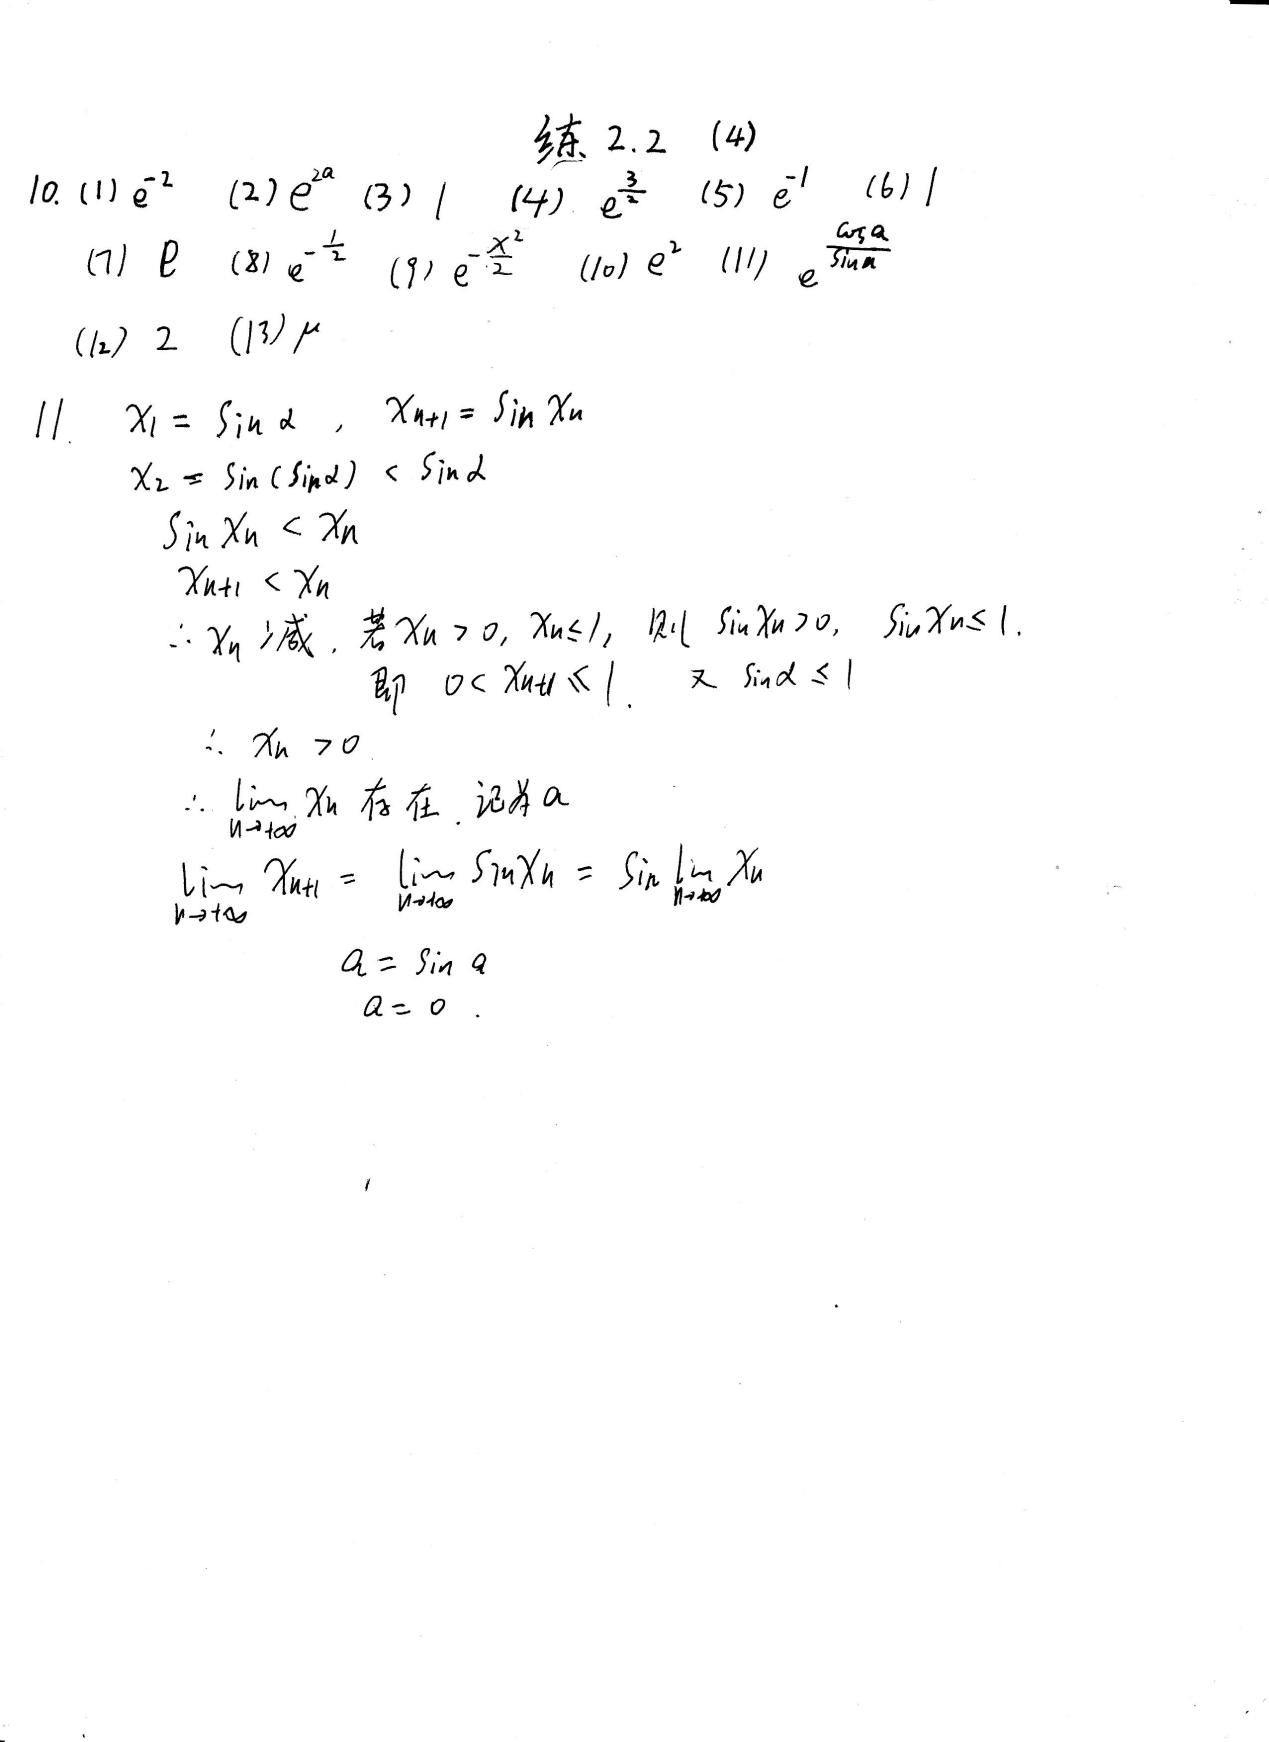 练 2.2 (4)
10. (1) e^{-2} (2) e^{2a} (3) 1 (4) e^{\frac{3}{2}} (5) e^{-1} (6) 1
(7) e (8) e^{-\frac{1}{2}} (9) e^{-\frac{x^2}{2}} (10) e^2 (11) e^{\frac{cos a}{sin a}}
(12) 2 (13) μ
11. x_1 = sin α , x_{n+1} = sin x_n
x_2 = sin(sin α) < sin α
sin x_n < x_n
x_{n+1} < x_n
∴ x_n 减. 若 x_n > 0, x_n ≤ 1, 则 sin x_n > 0, sin x_n ≤ 1.
即 0 < x_{n+1} ≤ 1. 又 sin α ≤ 1
∴ x_n > 0
∴ lim_{n→+∞} x_n 存在. 记为 a
lim_{n→+∞} x_{n+1} = lim_{n→+∞} sin x_n = sin lim_{n→+∞} x_n
a = sin a
a = 0 .